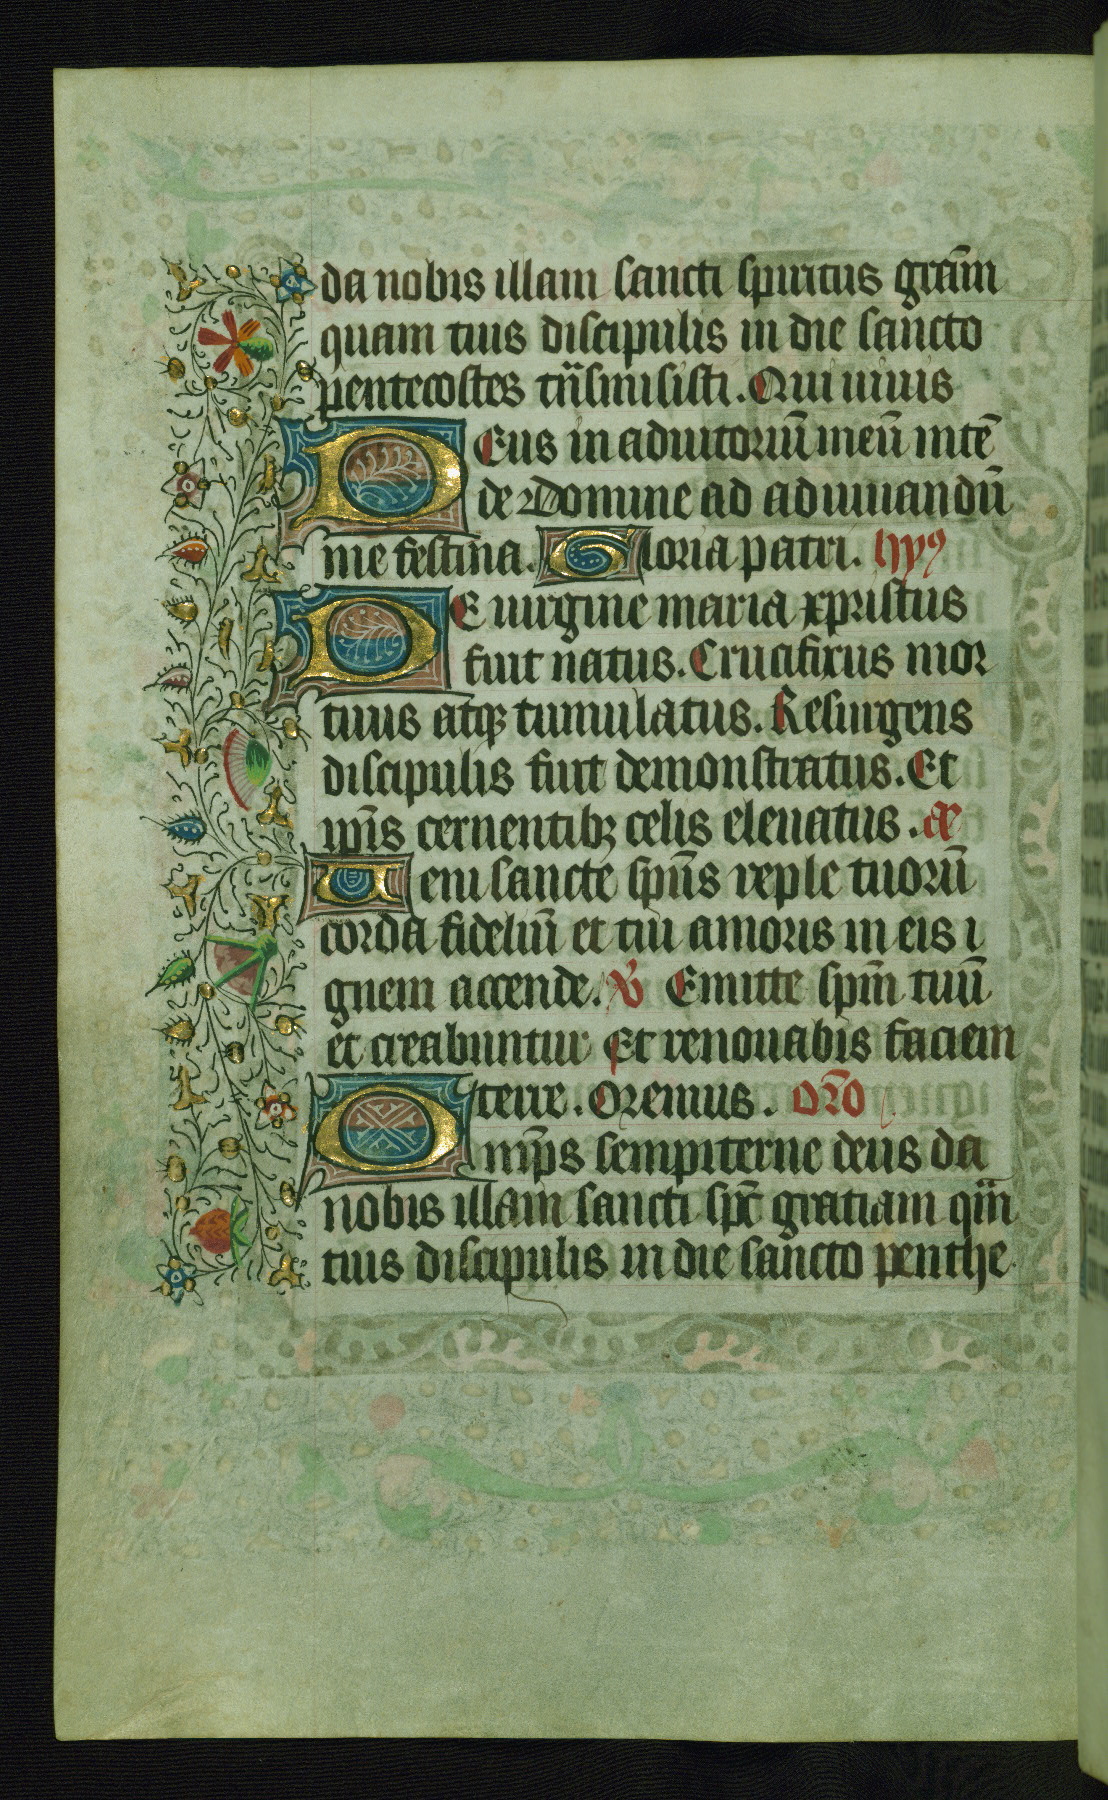 da nobis illam sancti spiritus grām
quam tuis discipulis in die sancto
pentecostes trāsmisisti. Qui uiuis
Deus in adiutoriū meū intē
de Domine ad adiuuandū
me festina. Gloria patri. hyꝰ
DE uirgine maria xpristus
fuit natus. Crucifixus mor
tuus atqꝫ tumulatus. Resurgens
discipulis fuit demonstratus. Et
ip̄is cernentibꝫ celis eleuatus. a͞
Ueni sancte sp̄us reple tuorū
corda fideliū et tui amoris in eis i
gnem accende. ℣ Emitte sp̄m tuū
et creabuntur Et renouabis faciem
terre. Oremus. Or̄o
Omp̄s sempiterne deus da
nobis illam sancti sp̄c gratiam qm̄
tuis discipulis in die sancto penthe